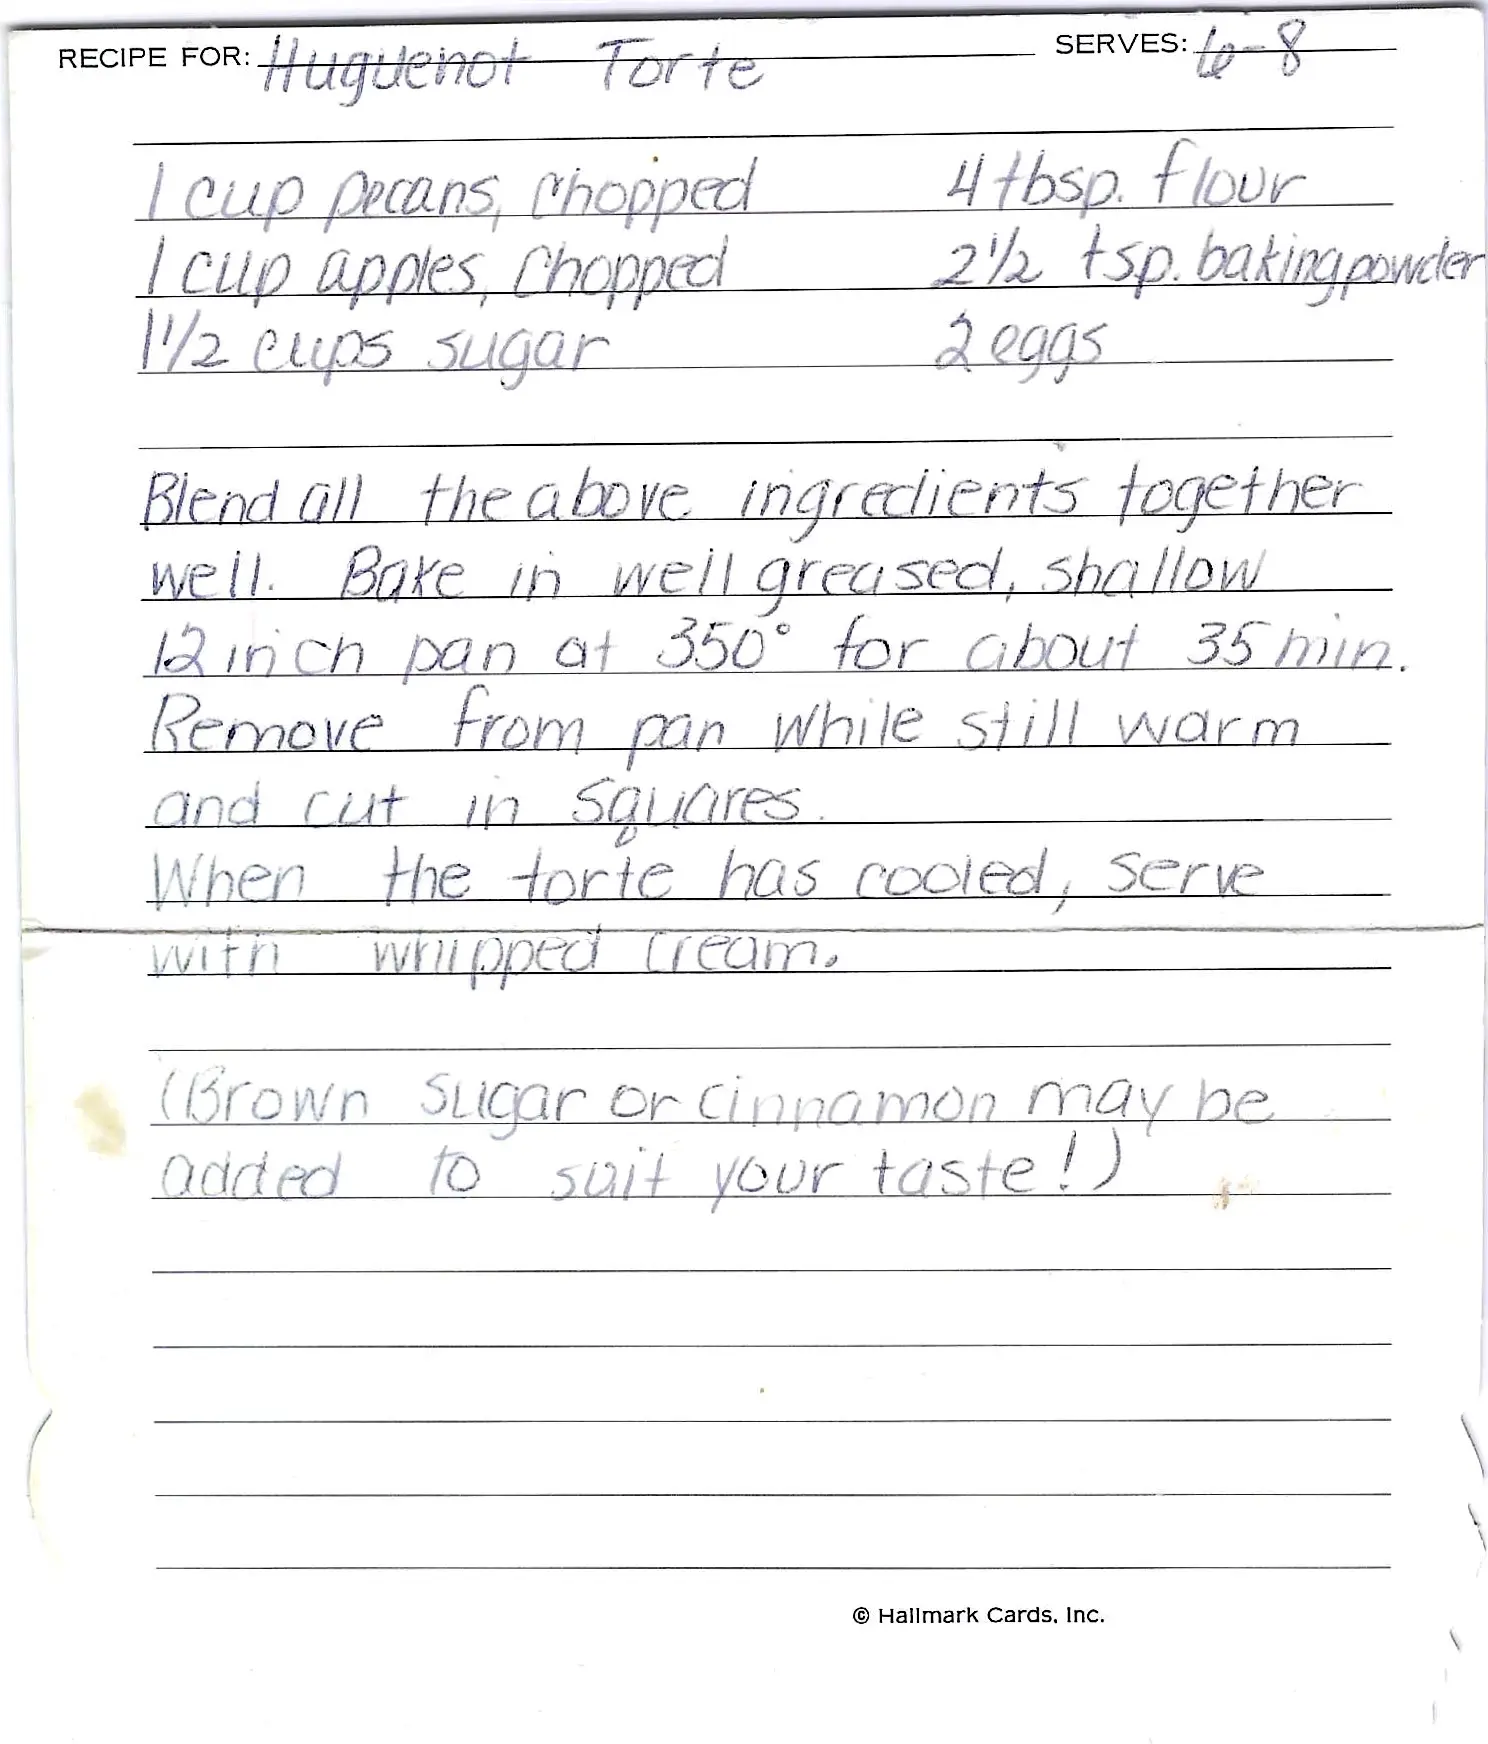 RECIPE FOR: Huguenot Torte SERVES: 6-8
1 cup pecans, chopped 4 tbsp. flour
1 cup apples, chopped 2 1/2 tsp. baking powder
1 1/2 cups sugar 2 eggs
Blend all the above ingredients together
well. Bake in well greased, shallow
12 inch pan at 350° for about 35 min.
Remove from pan while still warm
and cut in squares.
When the torte has cooled, serve
with whipped cream.
(Brown sugar or cinnamon may be
added to suit your taste!)
© Hallmark Cards, Inc.